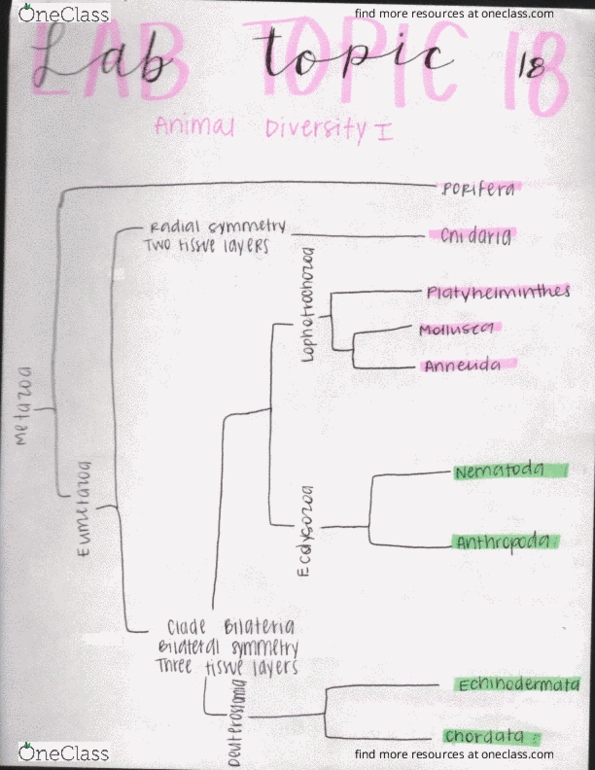 OneClass
find more resources at oneclass.com
LAB TOPIC 18
Lab topic 18
Animal Diversity I
Porifera
Radial symmetry
Two tissue layers
Cnidaria
Lophotrochozoa
Platyhelminthes
Mollusca
Annelida
Metazoa
Eumetazoa
Nematoda
Ecdysozoa
Anthropoda
Clade Bilateria
Bilateral symmetry
Three tissue layers
Deuterostomia
Echinodermata
Chordata
OneClass
find more resources at oneclass.com